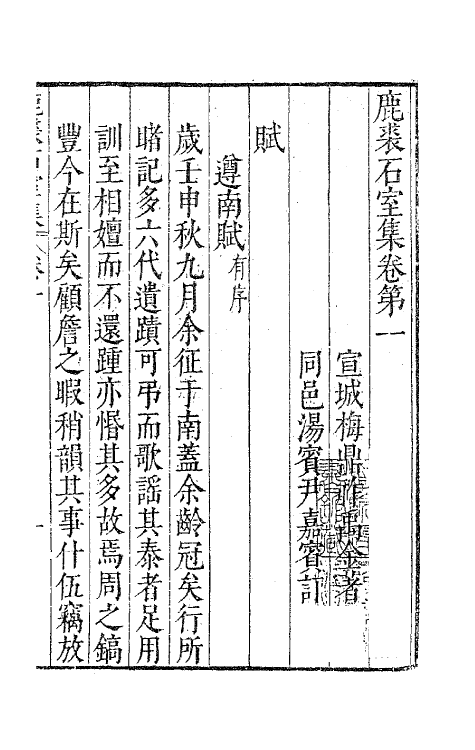 鹿裘石室集卷第一
宣城梅鼎祚禹金著
同邑湯賓尹嘉賓訂
賦
遵南賦有序
歲壬申秋九月余征于南蓋余齡冠矣行所
睹記多六代遺蹟可弔而歌謡其泰者足用
訓至相嬗而不還踵亦惛其多故焉周之鎬
豐今在斯矣顧詹之暇稍韻其事什伍竊放
鹿裘石室集 卷一 一